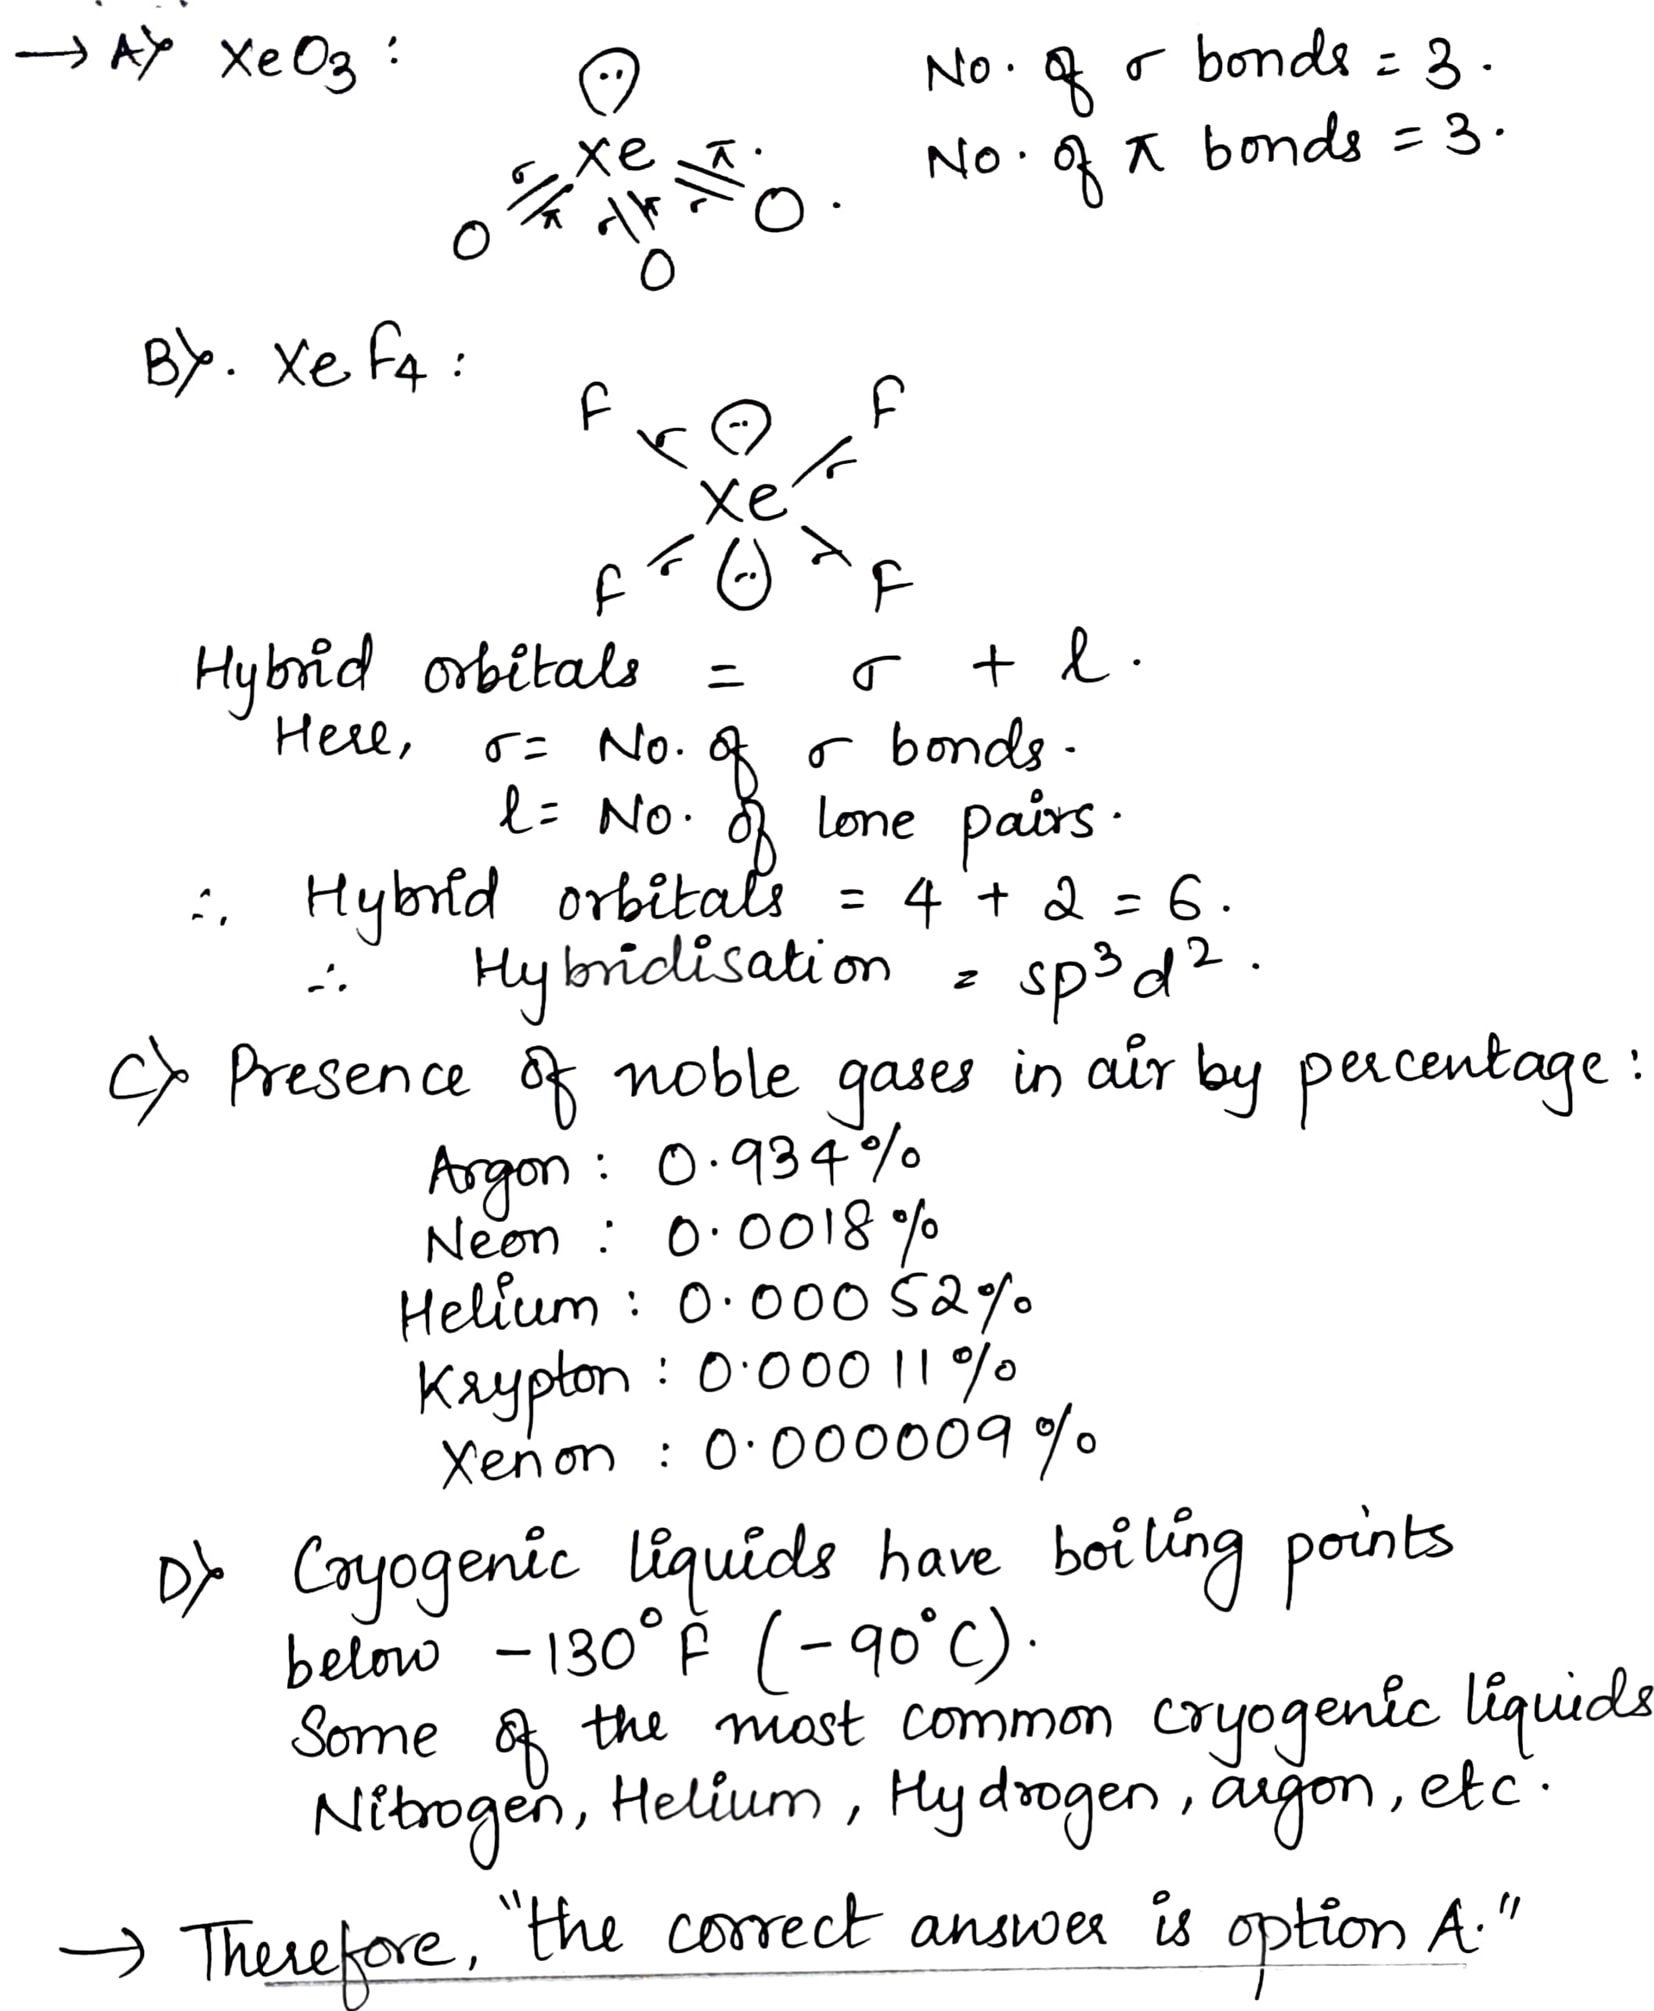 → A) XeO3 :
No. of σ bonds = 3.
No. of π bonds = 3.
Xe
σ π σ π σ π
O O O.
B). XeF4 :
F F
σ σ
Xe
σ σ
F F
Hybrid orbitals = σ + l.
Here, σ = No. of σ bonds.
l = No. of lone pairs.
∴ Hybrid orbitals = 4 + 2 = 6.
∴ Hybridisation = sp³d².
C) Presence of noble gases in air by percentage :
Argon : 0.934%
Neon : 0.0018%
Helium : 0.00052%
Krypton : 0.00011%
Xenon : 0.000009%
D) Cryogenic liquids have boiling points
below -130°F (-90°C).
Some of the most common cryogenic liquids
Nitrogen, Helium, Hydrogen, argon, etc.
→ Therefore, "the correct answer is option A."